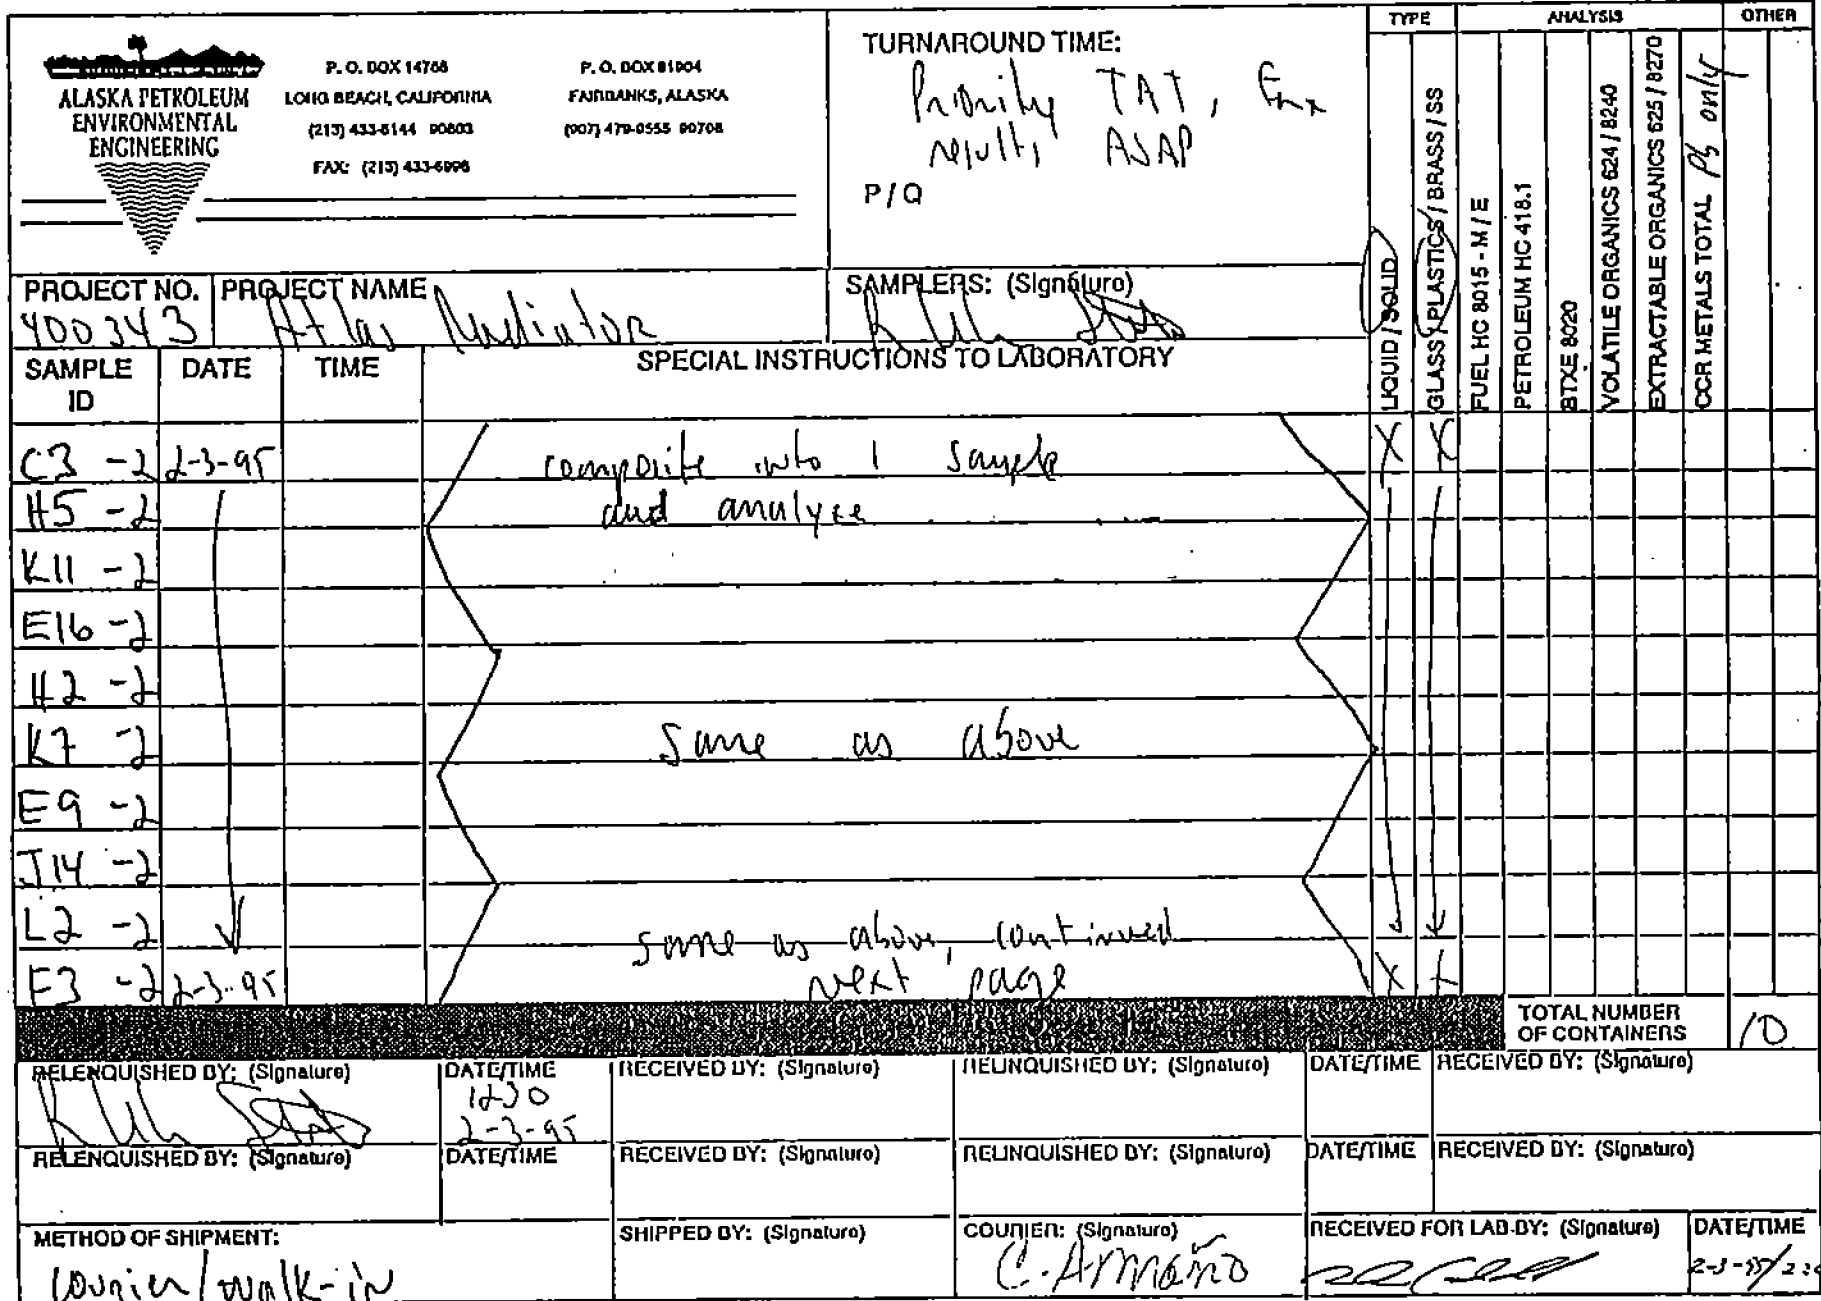 ALASKA PETROLEUM
ENVIRONMENTAL
ENGINEERING
P. O. BOX 14766
LONG BEACH, CALIFORNIA
(213) 433-6144 90803
FAX: (213) 433-6996
P. O. BOX 81904
FAIRBANKS, ALASKA
(907) 479-0555 90708
TURNAROUND TIME:
Priority TAT, Fax
results ASAP
P / Q
TYPE
ANALYSIS
OTHER
LIQUID / SOLID
GLASS / PLASTICS / BRASS / SS
FUEL HC 8015 - M / E
PETROLEUM HC 418.1
BTXE 8020
VOLATILE ORGANICS 624 / 8240
EXTRACTABLE ORGANICS 625 / 8270
CCR METALS TOTAL Pb only
PROJECT NO.
400343
PROJECT NAME
Atlas Radiator
SAMPLERS: (Signature)
SAMPLE ID
DATE
TIME
SPECIAL INSTRUCTIONS TO LABORATORY
C3 -2 2-3-95 composite into 1 sample X X
H5 -2 and analyze
K11 -2
E16 -2
H2 -2
K7 -2 same as above
E9 -2
J14 -2
L2 -2 same as above, continued
F3 -2 2-3-95 next page X X
TOTAL NUMBER
OF CONTAINERS
10
RELENQUISHED BY: (Signature)
DATE/TIME
1230
2-3-95
RECEIVED BY: (Signature)
RELINQUISHED BY: (Signature)
DATE/TIME
RECEIVED BY: (Signature)
RELENQUISHED BY: (Signature)
DATE/TIME
RECEIVED BY: (Signature)
RELINQUISHED BY: (Signature)
DATE/TIME
RECEIVED BY: (Signature)
METHOD OF SHIPMENT:
courier / walk-in
SHIPPED BY: (Signature)
COURIER: (Signature)
C. Armaño
RECEIVED FOR LAB BY: (Signature)
DATE/TIME
2-3-95/